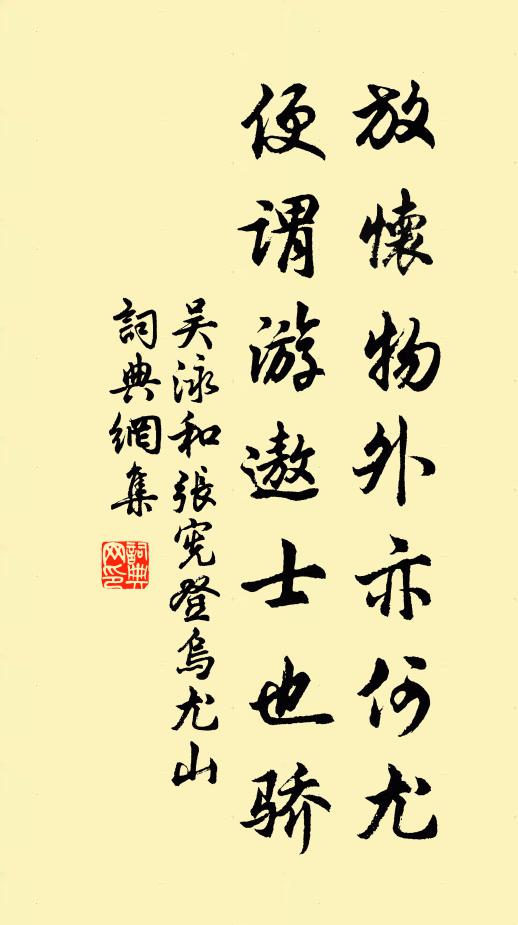 放懷物外亦何尤
便谓游遨士也骄
吴泳和張宪登烏尤山
詞典網集
詞典网印